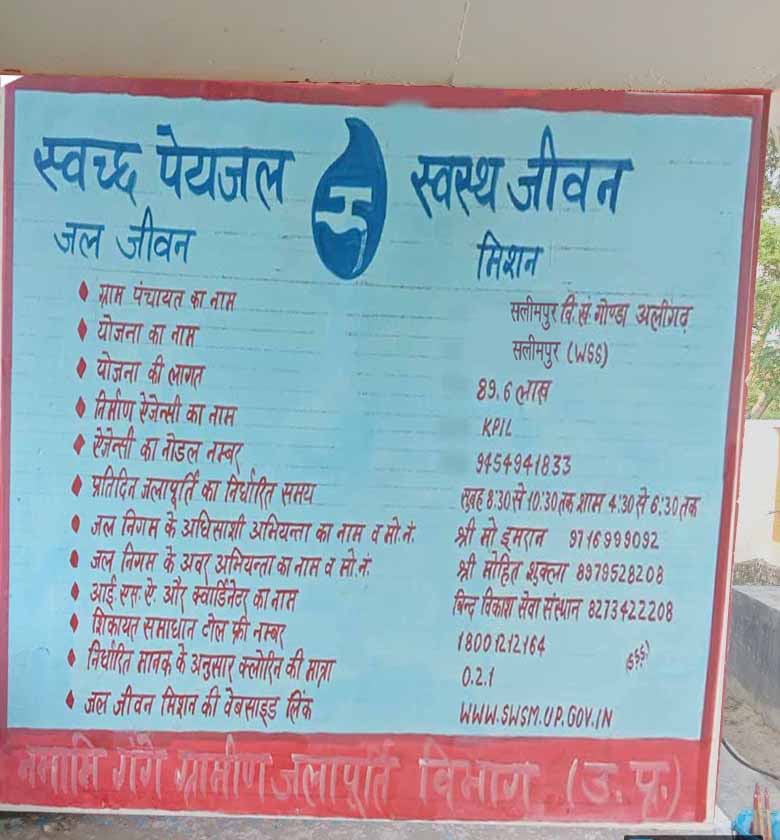 स्वच्छ पेयजल स्वस्थ जीवन
जल जीवन मिशन
ग्राम पंचायत का नाम सलीमपुर वि.सं. गोण्डा अलीगढ़
योजना का नाम सलीमपुर (WSS)
योजना की लागत 89.6 लाख
निर्माण ऐजेन्सी का नाम KPIL
ऐजेन्सी का नोडल नम्बर 9454941833
प्रतिदिन जलापूर्ति का निर्धारित समय सुबह 8:30 से 10:30 तक शाम 4:30 से 6:30 तक
जल निगम के अधिसाशी अभियन्ता का नाम व मो.नं. श्री मो इमरान 9716999092
जल निगम के अवर अभियन्ता का नाम व मो.नं. श्री मोहित शुक्ला 8979528208
आई.एस.ऐ और क्वार्डिनेटर का नाम बिन्द विकाश सेवा संस्थान 8273422208
शिकायत समाधान टोल फ्री नम्बर 18001212164
निर्धारित मानक के अनुसार क्लोरिन की मात्रा 0.2.1
जल जीवन मिशन की वेबसाइड लिंक WWW.SWSM.UP.GOV.IN
नमामि गंगे ग्रामीण जलापूर्ति विभाग (उ.प्र.)